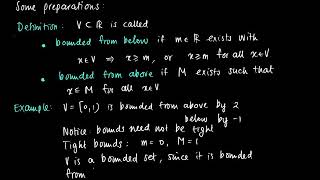 Some preparations:
Definition: V ⊂ ℝ is called
• bounded from below if m ∈ ℝ exists with
x ∈ V ⇒ x ≥ m, or x ≥ m for all x ∈ V
• bounded from above if M exists such that
x ≤ M for all x ∈ V
Example: V = [0,1) is bounded from above by 2
below by -1
Notice: bounds need not be tight
Tight bounds: m = 0, M = 1
V is a bounded set, since it is bounded
from